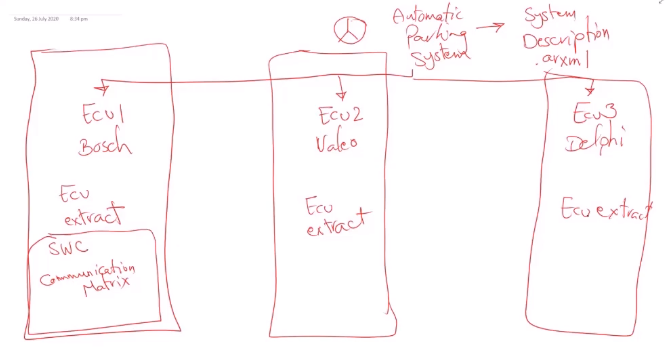 Sunday, 26 July 2020 8:34 pm
Automatic
Parking
System
System
Description
.arxml
Ecu1
Bosch
Ecu
extract
SWC
Communication
Matrix
Ecu2
Valeo
Ecu
extract
Ecu3
Delphi
Ecu extract